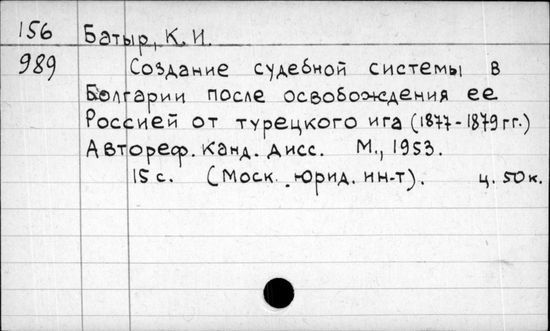 156 Батыр, К. И.
989 Создание судебной системы в
Болгарии после освобождения ее
Россией от турецкого ига (1877-1879 гг.)
Автореф. канд. дисс. М., 1953.
15 с. (Моск. юрид. ин-т). ц. 50 к.